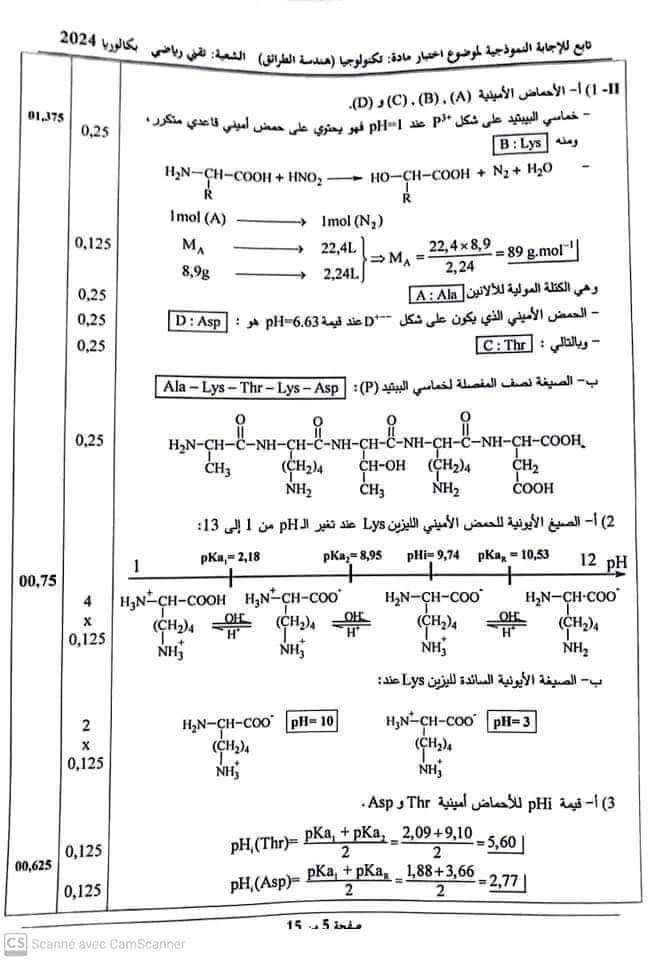 تابع للإجابة النموذجية لموضوع اختبار مادة: تكنولوجيا (هندسة الطرائق) الشعبة: تقني رياضي بكالوريا 2024
II- 1) أ- الأحماض الأمينية (A) ، (B) ، (C) و (D).
01,375
0,25 - خماسي الببتيد على شكل P³⁺ عند pH=1 فهو يحتوي على حمض أميني قاعدي متكرر،
ومنه B : Lys
- H₂N–CH–COOH + HNO₂ ⟶ HO–CH–COOH + N₂ + H₂O
R R
1mol (A) ⟶ 1mol (N₂)
0,125 M_A ⟶ 22,4L } ⇒ M_A = 22,4×8,9 / 2,24 = 89 g.mol⁻¹
8,9g ⟶ 2,24L
0,25 وهي الكتلة المولية للألانين A : Ala
0,25 - الحمض الأميني الذي يكون على شكل D⁺⁻⁻ عند قيمة pH=6.63 هو : D : Asp
0,25 - وبالتالي : C : Thr
ب- الصيغة نصف المفصلة لخماسي الببتيد (P): Ala – Lys – Thr – Lys – Asp
O O O O
0,25 H₂N–CH–C–NH–CH–C–NH–CH–C–NH–CH–C–NH–CH–COOH
CH₃ (CH₂)₄ CH–OH (CH₂)₄ CH₂
NH₂ CH₃ NH₂ COOH
2) أ- الصيغ الأيونية للحمض الأميني الليزين Lys عند تغير الـ pH من 1 إلى 13:
1 pKa₁= 2,18 pKa₂= 8,95 pHi= 9,74 pKa_R = 10,53 12 pH
00,75
4 x 0,125
H₃N⁺–CH–COOH H₃N⁺–CH–COO⁻ H₂N–CH–COO⁻ H₂N–CH-COO⁻
(CH₂)₄ OH⁻ / H⁺ (CH₂)₄ OH⁻ / H⁺ (CH₂)₄ OH⁻ / H⁺ (CH₂)₄
NH₃⁺ NH₃⁺ NH₃⁺ NH₂
ب- الصيغة الأيونية السائدة لليزين Lys عند:
2 x 0,125
H₂N–CH–COO⁻ pH= 10 H₃N⁺–CH–COO⁻ pH= 3
(CH₂)₄ (CH₂)₄
NH₃⁺ NH₃⁺
3) أ- قيمة pHi للأحماض أمينية Thr و Asp .
00,625
0,125 pHᵢ(Thr)= pKa₁ + pKa₂ / 2 = 2,09 + 9,10 / 2 = 5,60
0,125 pHᵢ(Asp)= pKa₁ + pKa_R / 2 = 1,88 + 3,66 / 2 = 2,77
صفحة 5 من 15
CS Scanné avec CamScanner